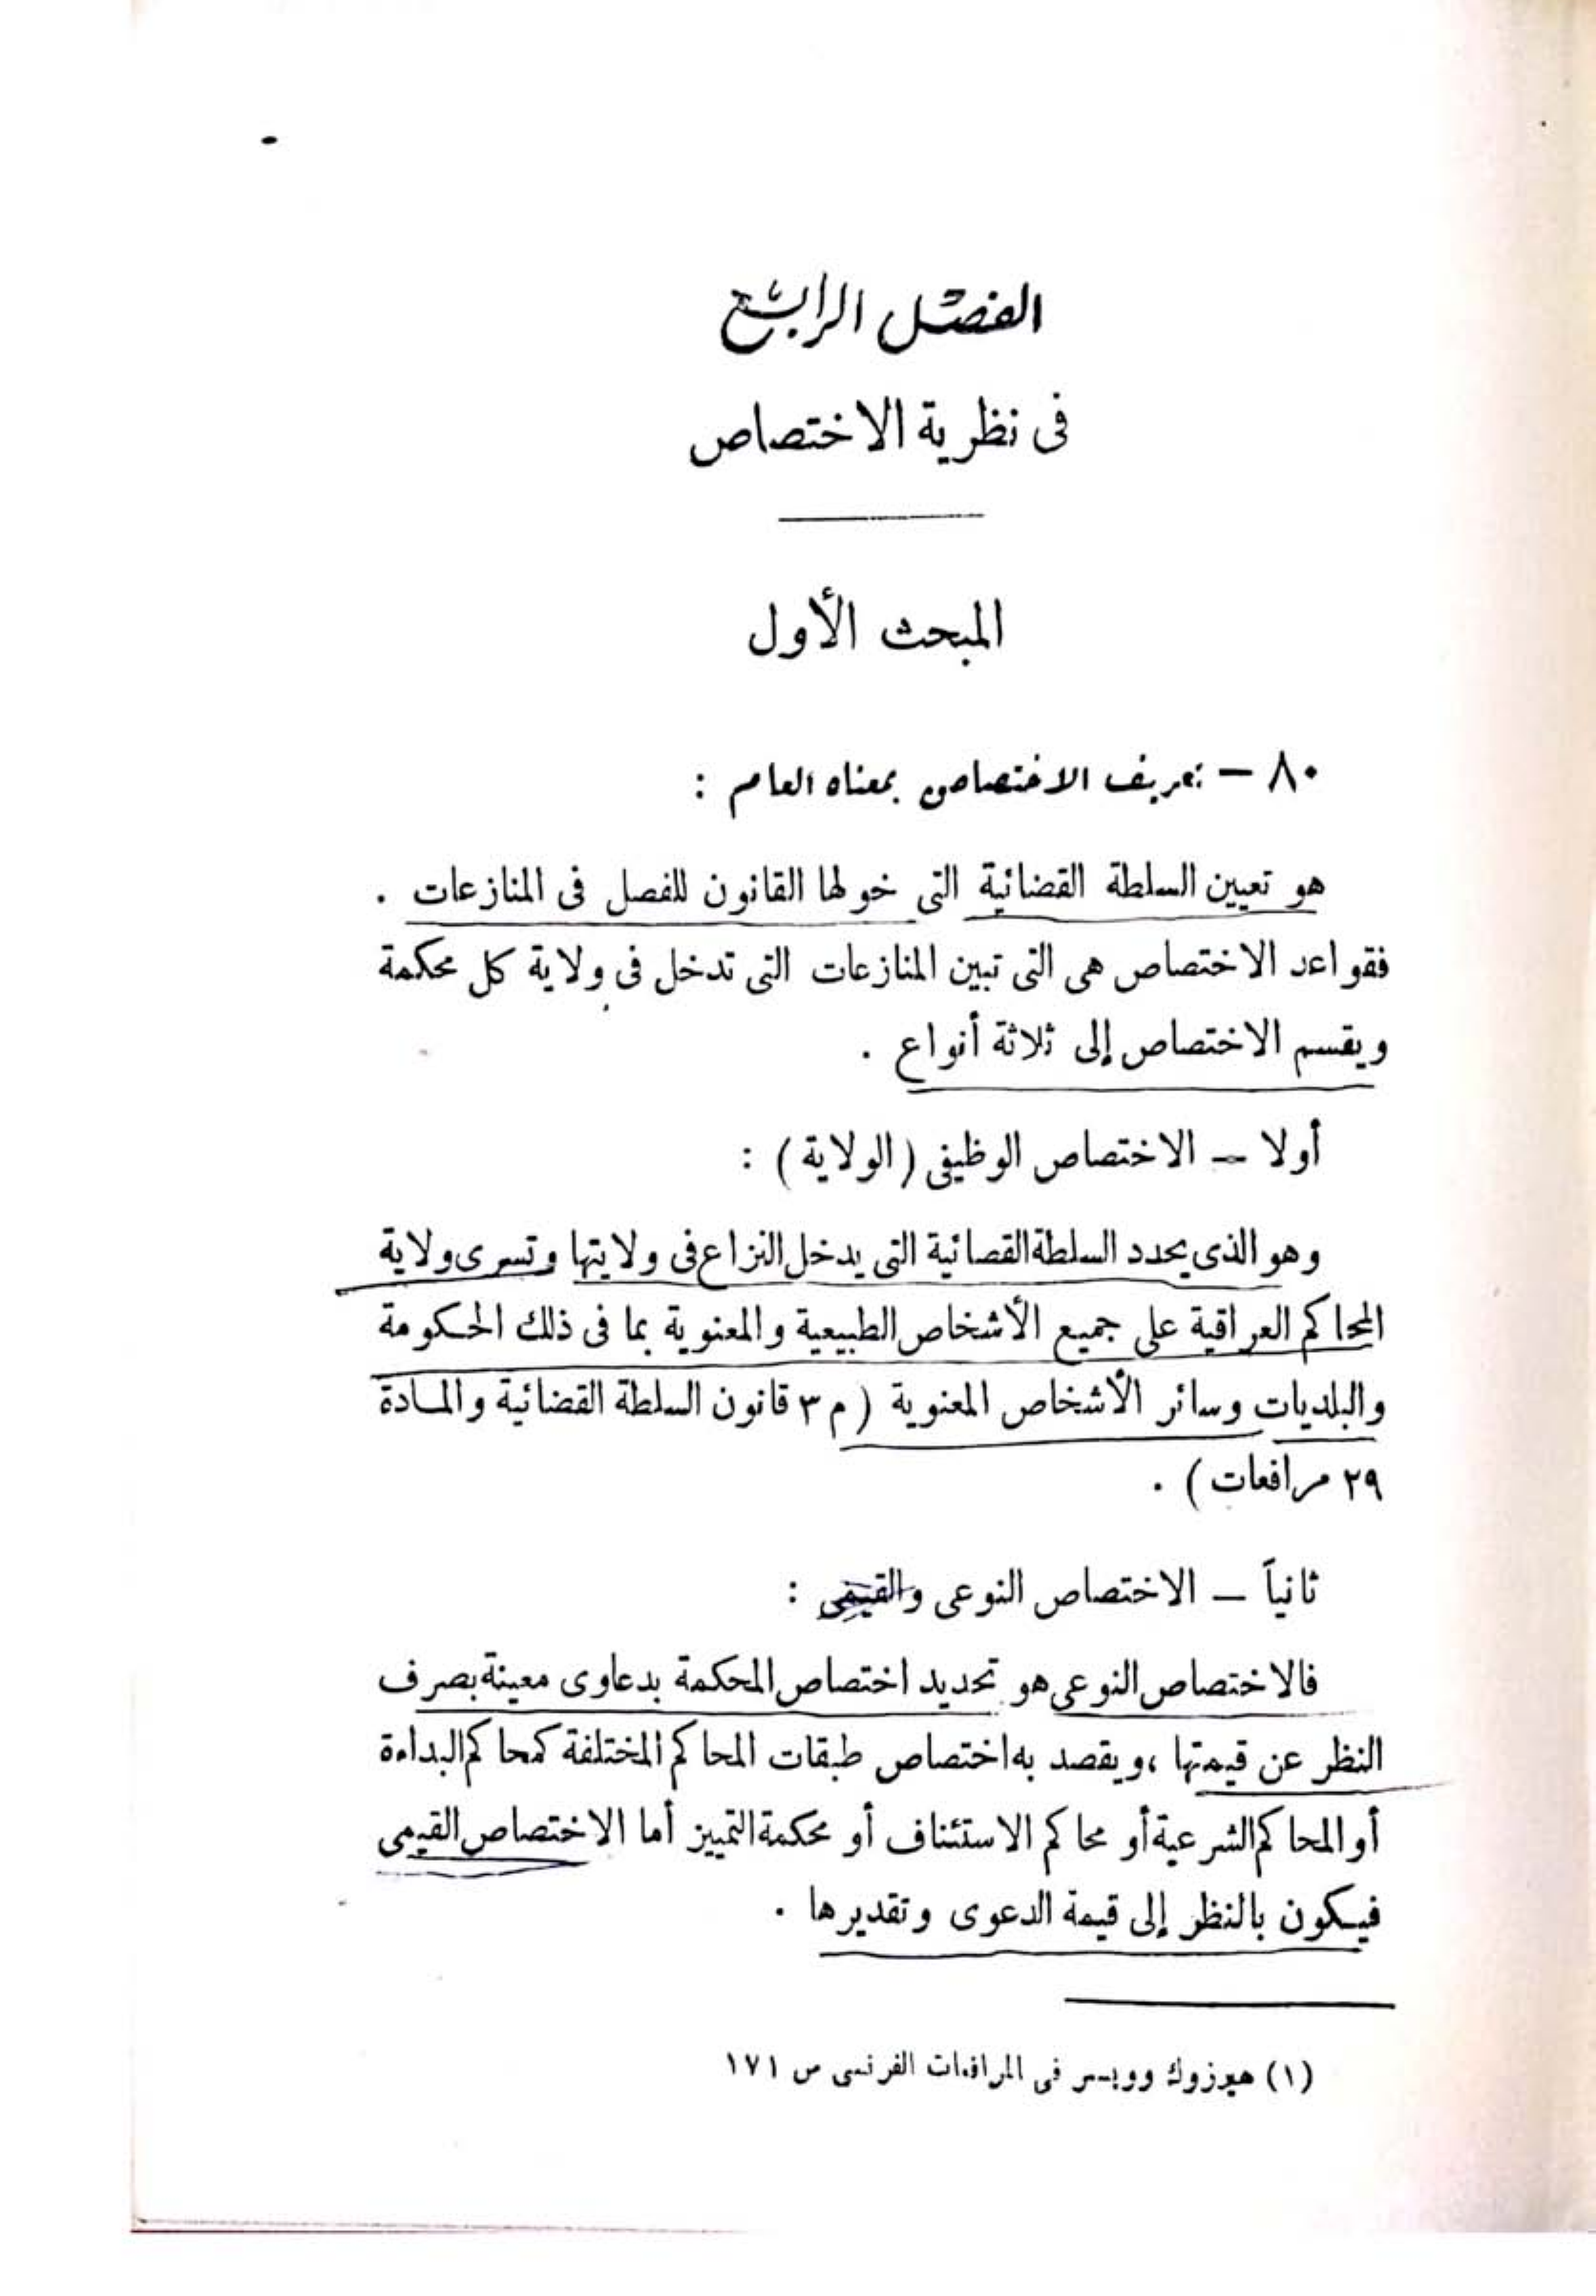 الفصل الرابع
فى نظرية الاختصاص
المبحث الأول
٨٠ – تعريف الاختصاص بمعناه العام :
هو تعيين السلطة القضائية التى خولها القانون للفصل فى المنازعات .
فقواعد الاختصاص هى التى تبين المنازعات التى تدخل فى ولاية كل محكمة
ويقسم الاختصاص إلى ثلاثة أنواع .
أولا – الاختصاص الوظيفى ( الولاية ) :
وهو الذى يحدد السلطة القصائية التى يدخل النزاع فى ولايتها وتسرى ولاية
المحاكم العراقية على جميع الأشخاص الطبيعية والمعنوية بما فى ذلك الحكومة
والبلديات وسائر الأشخاص المعنوية ( م ٣ قانون السلطة القضائية والمادة
٢٩ مرافعات ) .
ثانياً – الاختصاص النوعى والقيمى :
فالاختصاص النوعى هو تحديد اختصاص المحكمة بدعاوى معينة بصرف
النظر عن قيمتها ، ويقصد به اختصاص طبقات المحاكم المختلفة كمحاكم البداءة
أو المحاكم الشرعية أو محاكم الاستئناف أو محكمة التمييز أما الاختصاص القيمى
فيكون بالنظر إلى قيمة الدعوى وتقديرها .
(١) فى المرافعات الفرنسى ص ١٧١